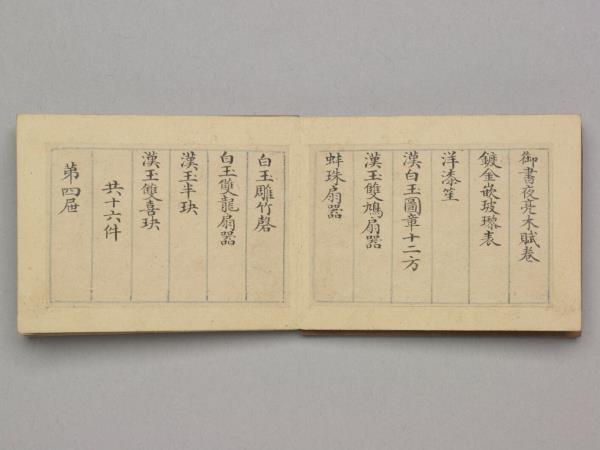 御書夜亮木賦卷
鍍金嵌玻瓈表
洋漆笙
漢白玉圖章十二方
漢玉雙鳩扇器
蚌珠扇器
白玉雕竹磬
白玉雙龍扇器
漢玉半玦
漢玉雙喜玦
共十六件
第四屜